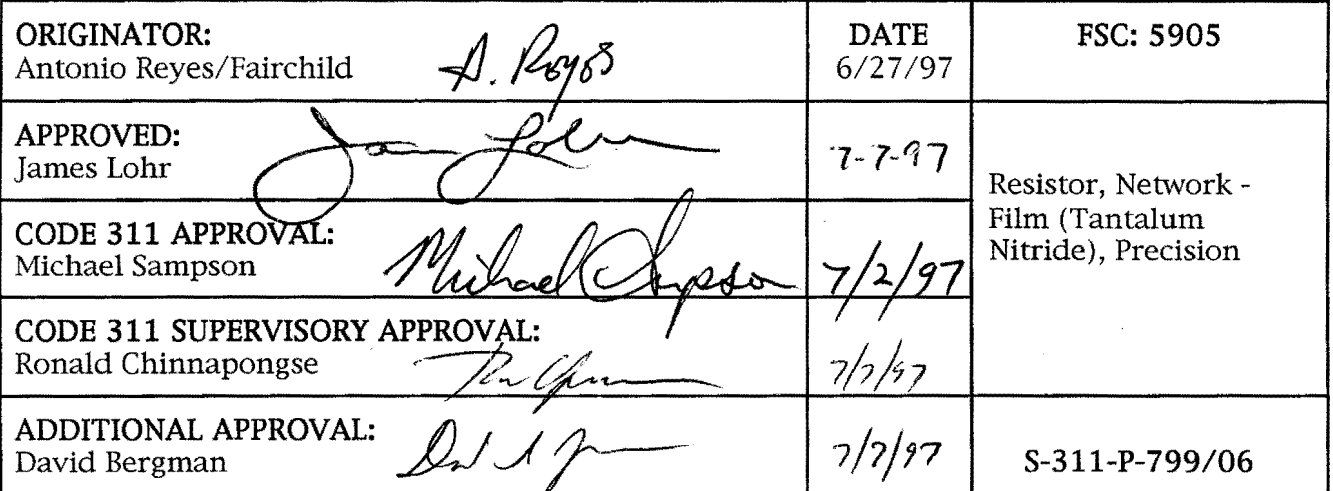 ORIGINATOR:
Antonio Reyes/Fairchild
A. Reyes
DATE
6/27/97
FSC: 5905
APPROVED:
James Lohr
7-7-97
Resistor, Network -
Film (Tantalum
Nitride), Precision
CODE 311 APPROVAL:
Michael Sampson
Michael Sampson
7/2/97
CODE 311 SUPERVISORY APPROVAL:
Ronald Chinnapongse
7/7/97
ADDITIONAL APPROVAL:
David Bergman
7/7/97
S-311-P-799/06